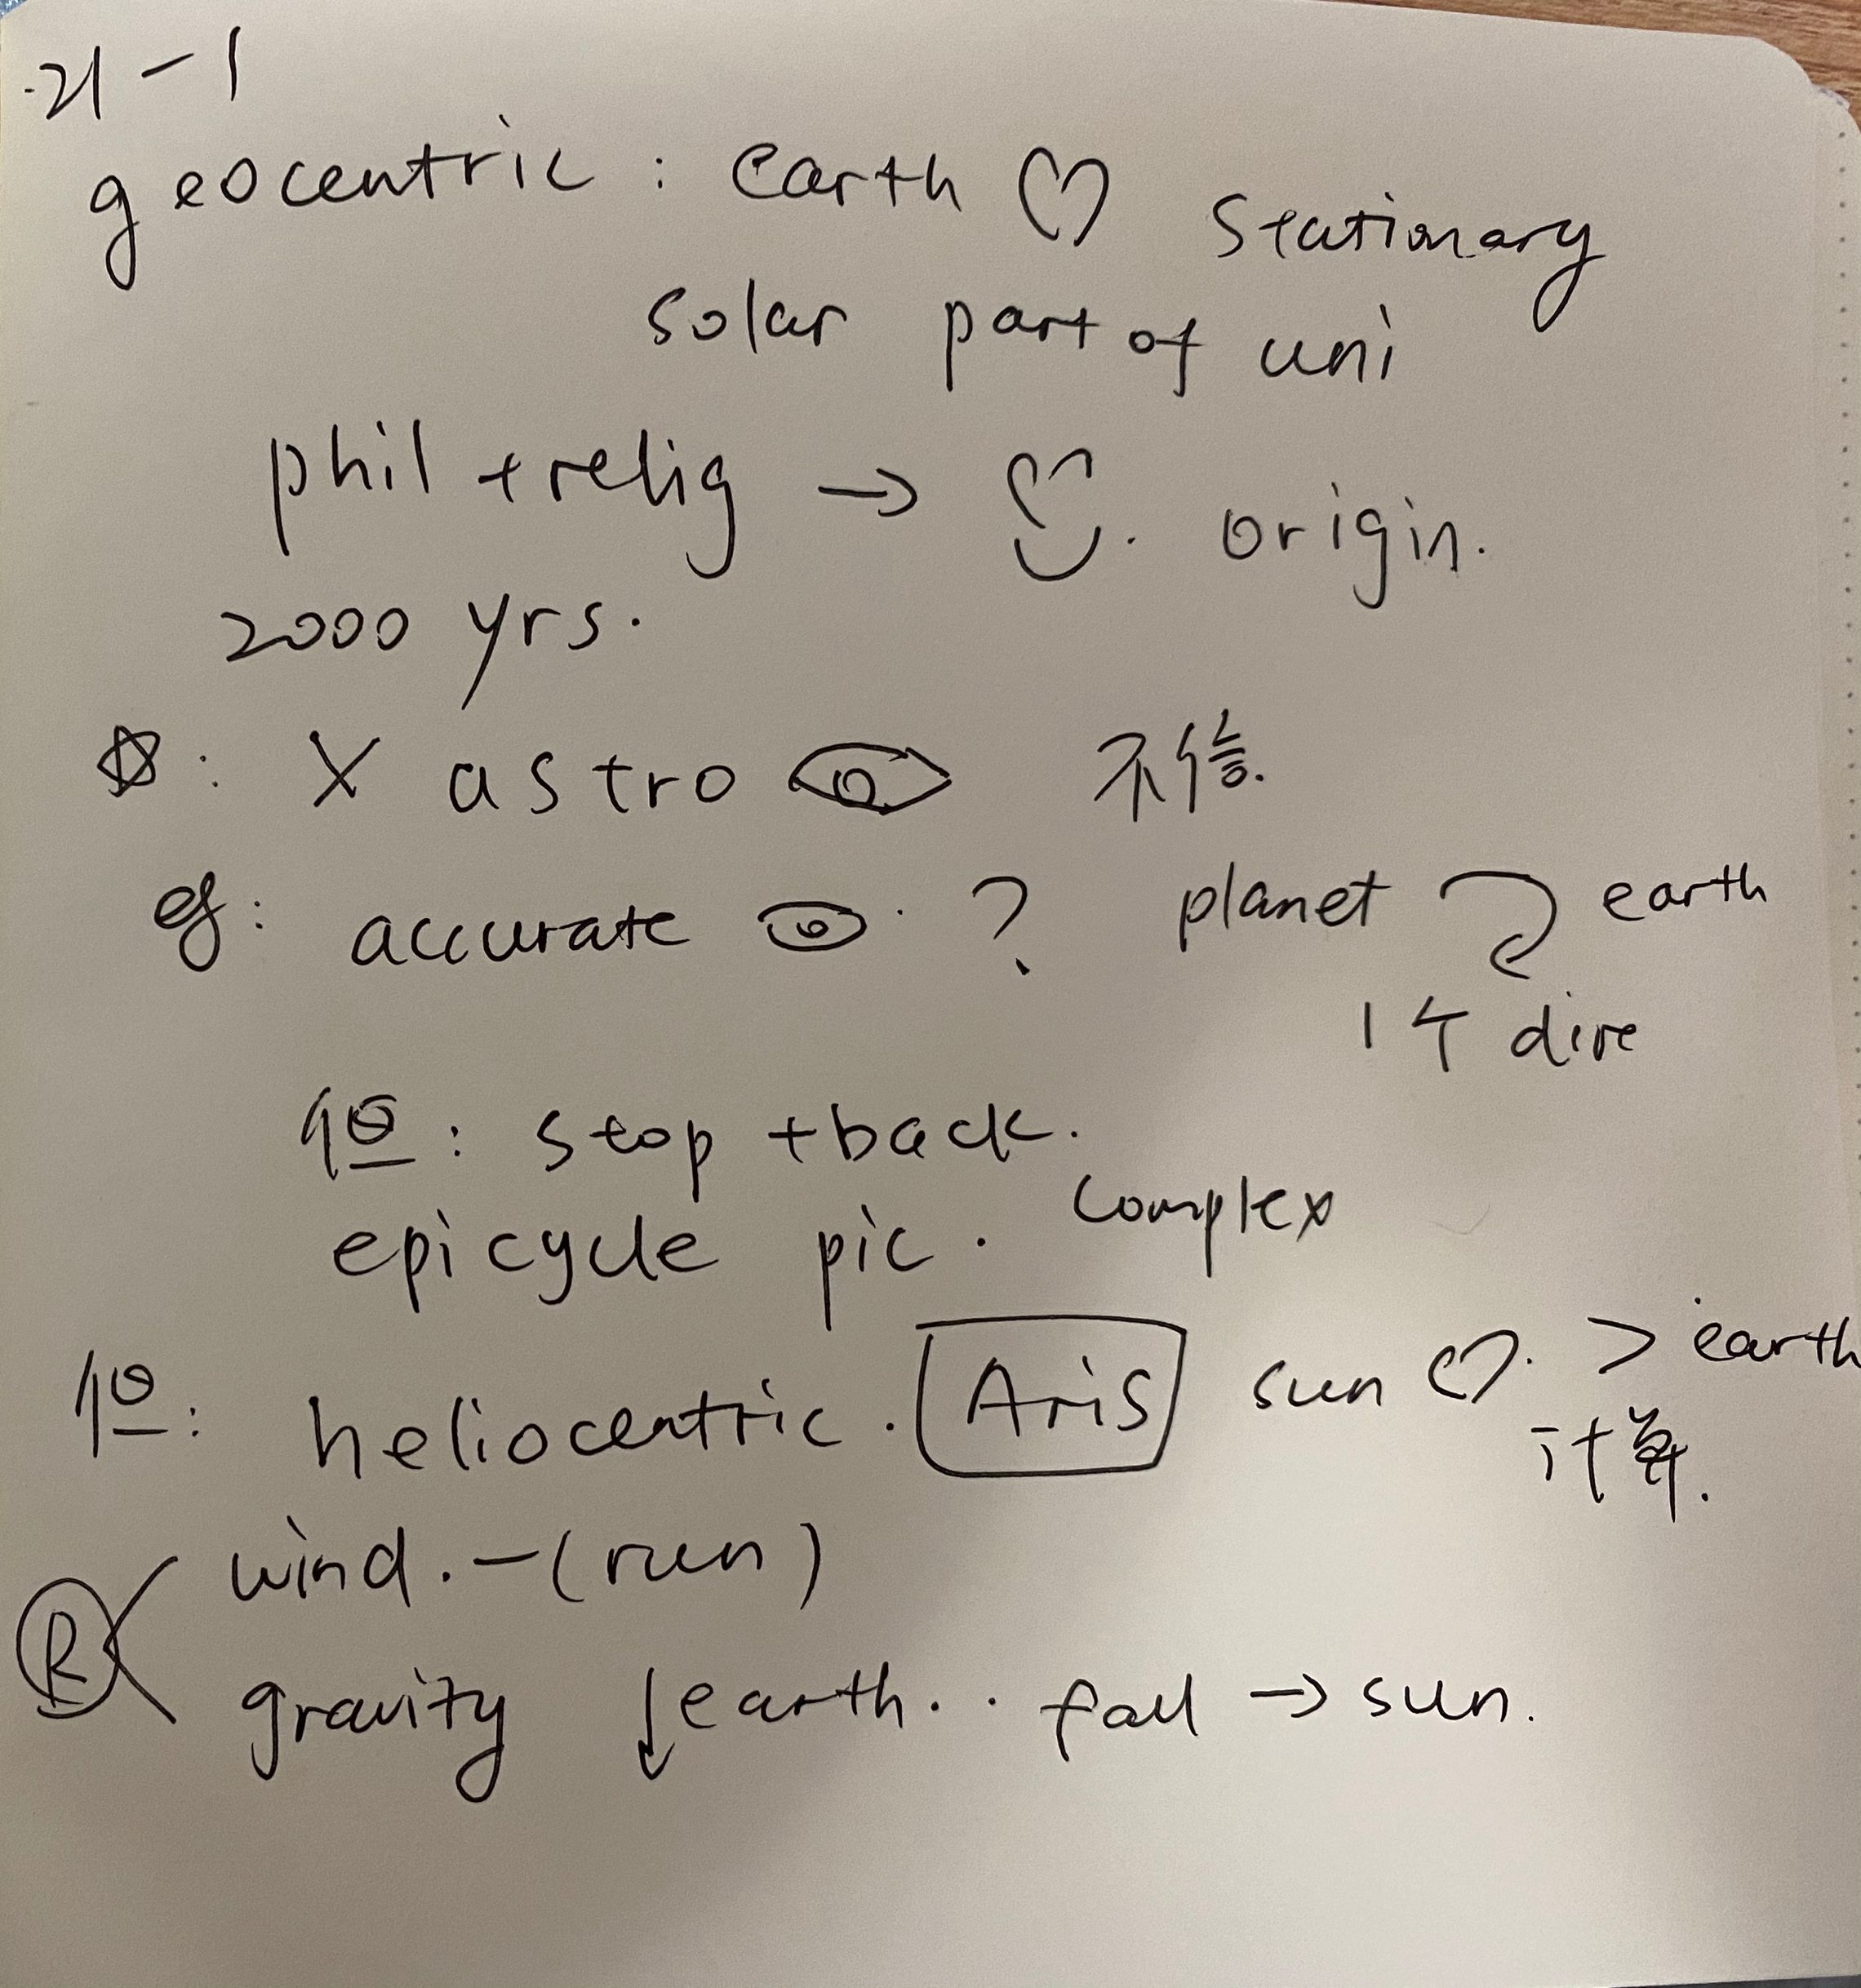 21-1
geocentric : earth ♡ stationary
solar part of uni
phil + relig → . origin.
2000 yrs.
☆: X astro 不信.
eg: accurate ? planet earth
1个 dire
但: stop + back.
epicycle pic. complex
但: heliocentric. Aris sun ♡. > earth
计算.
wind. - (run)
R
gravity ↓ earth.. fall → sun.